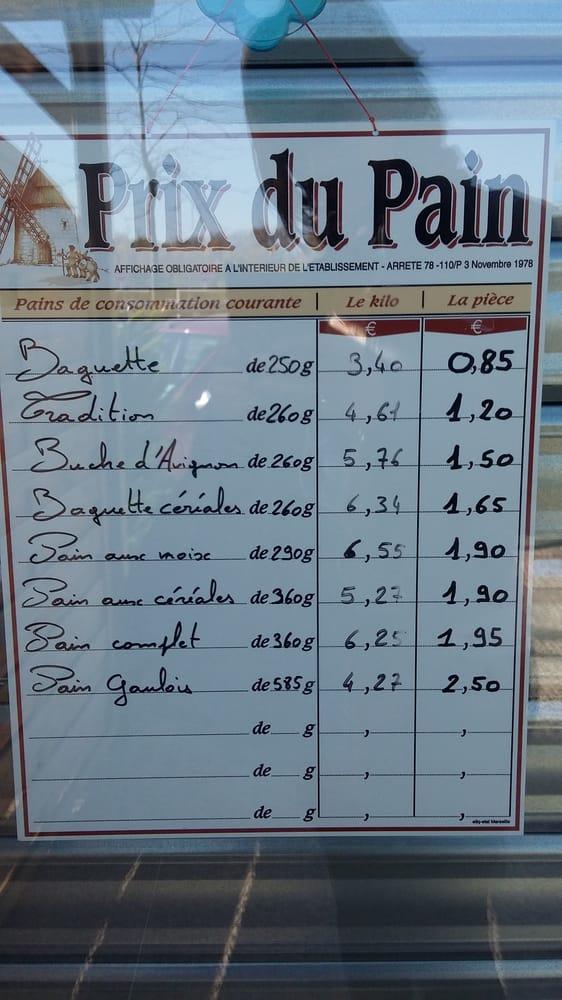 Prix du Pain
AFFICHAGE OBLIGATOIRE A L'INTERIEUR DE L'ETABLISSEMENT - ARRETE 78 -110/P 3 Novembre 1978
Pains de consommation courante | Le kilo | La pièce
€ €
Baguette de 250 g 3,40 0,85
Tradition de 260 g 4,61 1,20
Buche d'Avignon de 260 g 5,76 1,50
Baguette céréales de 260 g 6,34 1,65
Pain aux noix de 290 g 6,55 1,90
Pain aux céréales de 360 g 5,27 1,90
Pain complet de 360 g 6,25 1,95
Pain Gaulois de 585 g 4,27 2,50
de g , ,
de g , ,
de g , ,